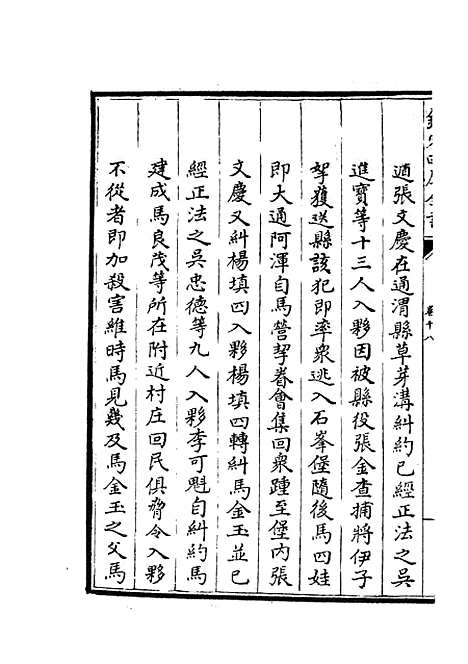 欽定四庫全書
卷十八
適張文慶在通渭縣草芽溝糾約已經正法之吳
進寶等十三人入夥因被縣役張金查捕將伊子
拏獲送縣該犯即率衆逃入石峯堡隨後馬四娃
即大通阿渾自馬營挈眷會集回衆踵至堡内張
文慶又糾楊填四入夥楊填四轉糾馬金玉並已
經正法之吳忠德等九人入夥李可魁自糾約馬
建成馬良茂等所在附近村庄回民俱脅令入夥
不從者即加殺害維時馬見幾及馬金玉之父馬